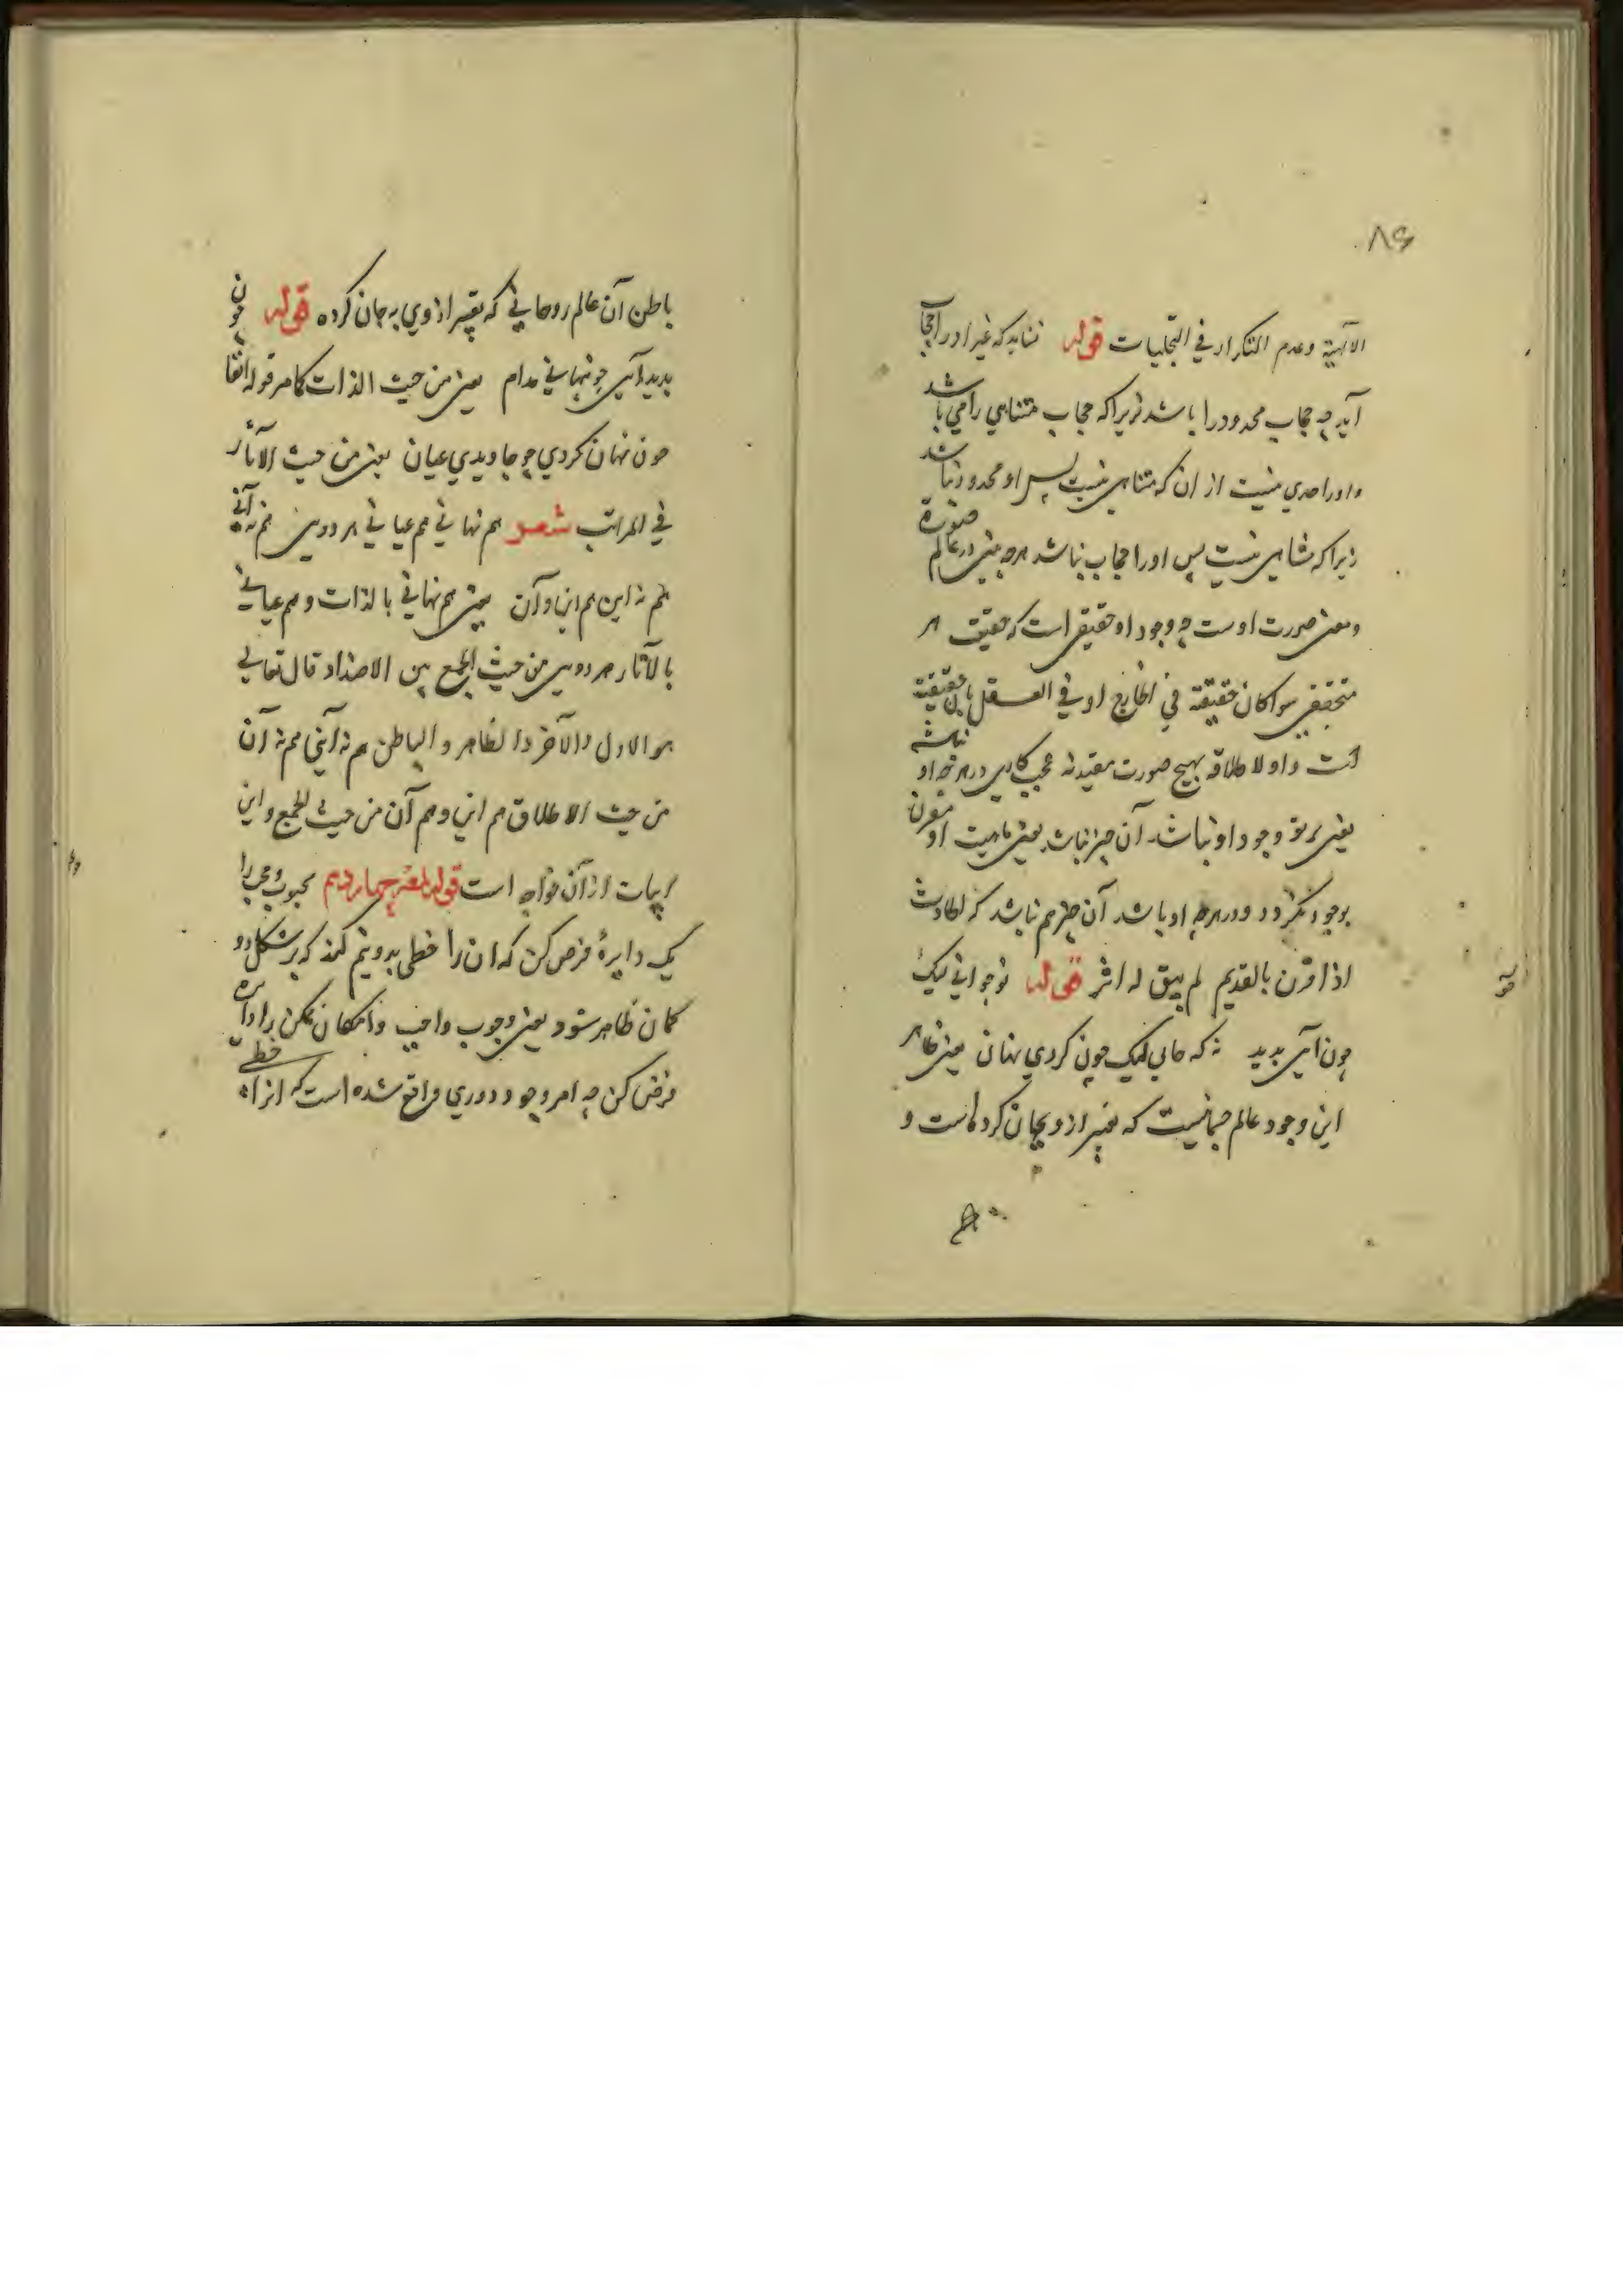 ۸۶
الآلهیة وعدم التکرار فی التجلیات قوله نشاید که غیر او را حجا
آید چه حجاب محدود را باشد زیرا که حجاب متناهی را می باشد
و او را حدی نیست از ان که متناهی نیست پس او محدود نباشد
زیرا که متناهی نیست پس او را حجاب نباشد هرچه بینی در عالم صورة
ومعنی صورت اوست چه وجود او حقیقی است که حقیقت هر
متحققی سوا کان حقیقة فی الخارج او فی العقل بان حقیقة
است و او لاطلاقه بهیچ صورت مقید نه عجب کاری در هرچه او نباشد
یعنی پرتو وجود او نباشد آن چیز نباشد یعنی ماهیت او مقرون
بوجود نگردد و در هرچه او باشد آن چیز هم نباشد که الحادث
اذا اقترن بالقدیم لم یبق له اثر قوله تو جهانی لیک
چون آیی بدید نه که جانی لیک چون کردی نهان یعنی ظاهر
این وجود عالم جسمانیست که تعبیر از و بجهان کرده است و
باطن آن عالم روحانی که تعبیر از وی به جان کرده قوله چون
بدید آیی چو نهانی مدام یعنی من حیث الذات کما مر قوله انفا
چون نهان کردی چو جاویدی عیان یعنی من حیث الآثار
فی المراتب شعر هم نهانی هم عیانی هر دویی هم نه آنی
هم نه این هم این و آن یعنی هم نهانی بالذات و هم عیانی
بالآثار هر دویی من حیث الجمع بین الاضداد قال تعالی
هو الاول والآخر والظاهر والباطن هم نه آنی هم نه آن
من حیث الاطلاق هم این و هم آن من حیث الجمع و این
ابیات از آن خواجه است قوله لمعه چهاردهم محبوب و محب را
یک دایرهٔ فرض کن که ان را خطی بدو نیم کند که بر شکل دو
کمان ظاهر شود یعنی وجوب واجب و امکان ممکن را دایره
فرض کن چه امر وجود دوری واقع شده است که انرا خطی